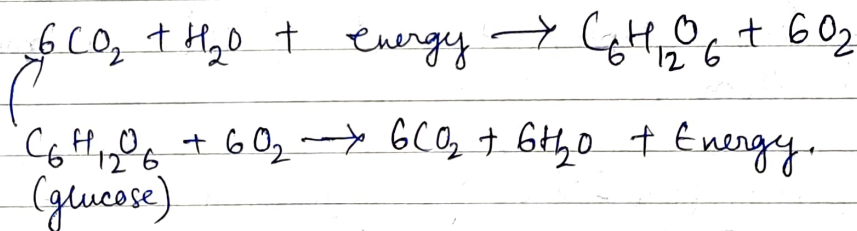 6CO₂ + H₂O + energy → C₆H₁₂O₆ + 6O₂
C₆H₁₂O₆ + 6O₂ → 6CO₂ + 6H₂O + Energy.
(glucose)